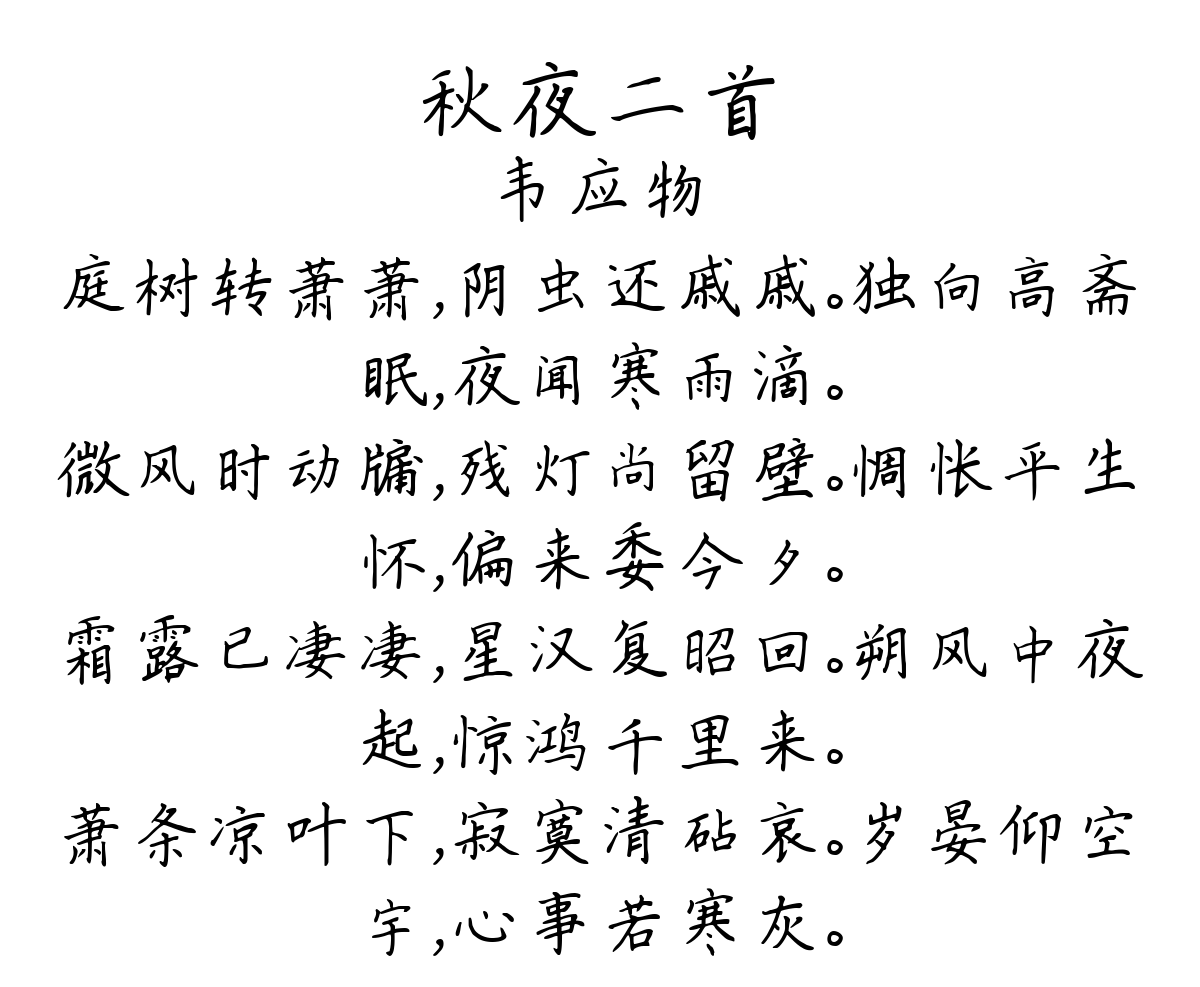 秋夜二首
韦应物
庭树转萧萧,阴虫还戚戚。独向高斋
眠,夜闻寒雨滴。
微风时动牖,残灯尚留壁。惆怅平生
怀,偏来委今夕。
霜露已凄凄,星汉复昭回。朔风中夜
起,惊鸿千里来。
萧条凉叶下,寂寞清砧哀。岁晏仰空
宇,心事若寒灰。